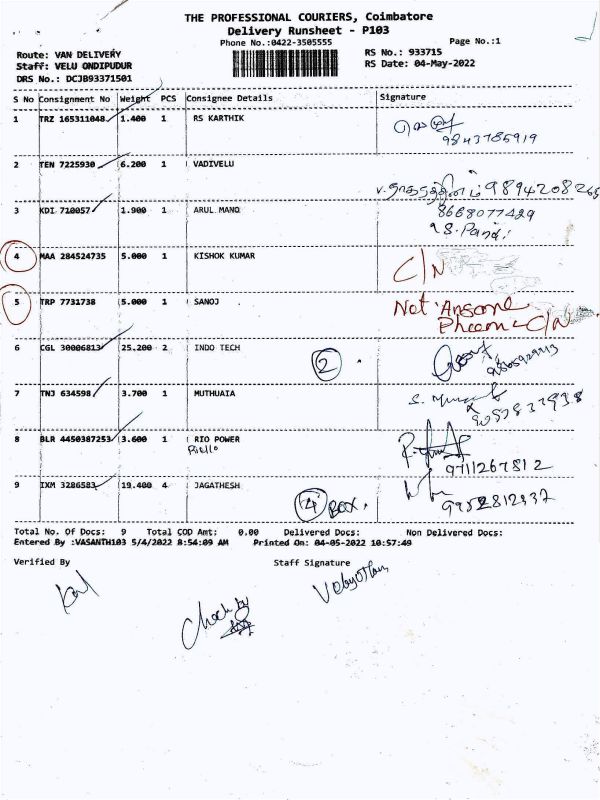 THE PROFESSIONAL COURIERS, Coimbatore
Delivery Runsheet - P103
Phone No.:0422-3505555
Page No.:1
Route: VAN DELIVERY
RS No.: 933715
Staff: VELU ONDIPUDUR
RS Date: 04-May-2022
DRS No.: DCJB93371501
S No Consignment No Weight PCS Consignee Details Signature
1 TRZ 165311048 1.400 1 RS KARTHIK
9843785919
2 TEN 7225930 6.200 1 VADIVELU
3 KDI 710057 1.900 1 ARUL MANO 8668077429
4 MAA 284524735 5.000 1 KISHOK KUMAR C/N
5 TRP 7731738 5.000 1 SANOJ Not Ansone
C/N
6 CGL 30006813 25.200 2 INDO TECH 2
7 TNJ 634598 3.700 1 MUTHUAIA
8 BLR 4450387253 3.600 1 RIO POWER
Riello
9711267812
9 IXM 3286583 19.400 4 JAGATHESH
4 Box.
Total No. Of Docs: 9 Total COD Amt: 0.00 Delivered Docs: Non Delivered Docs:
Entered By :VASANTH103 5/4/2022 8:54:09 AM Printed On: 04-05-2022 10:57:49
Verified By Staff Signature